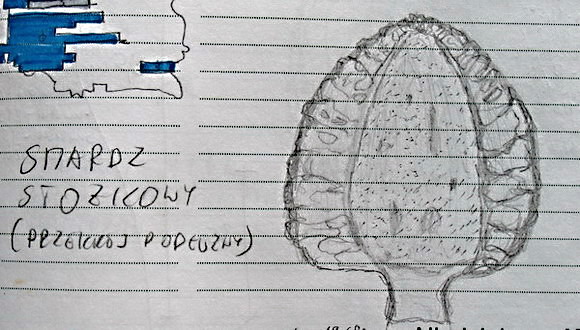 SMARDZ
STOZKOWY
(PRZEKRÓJ PODŁUŻNY)